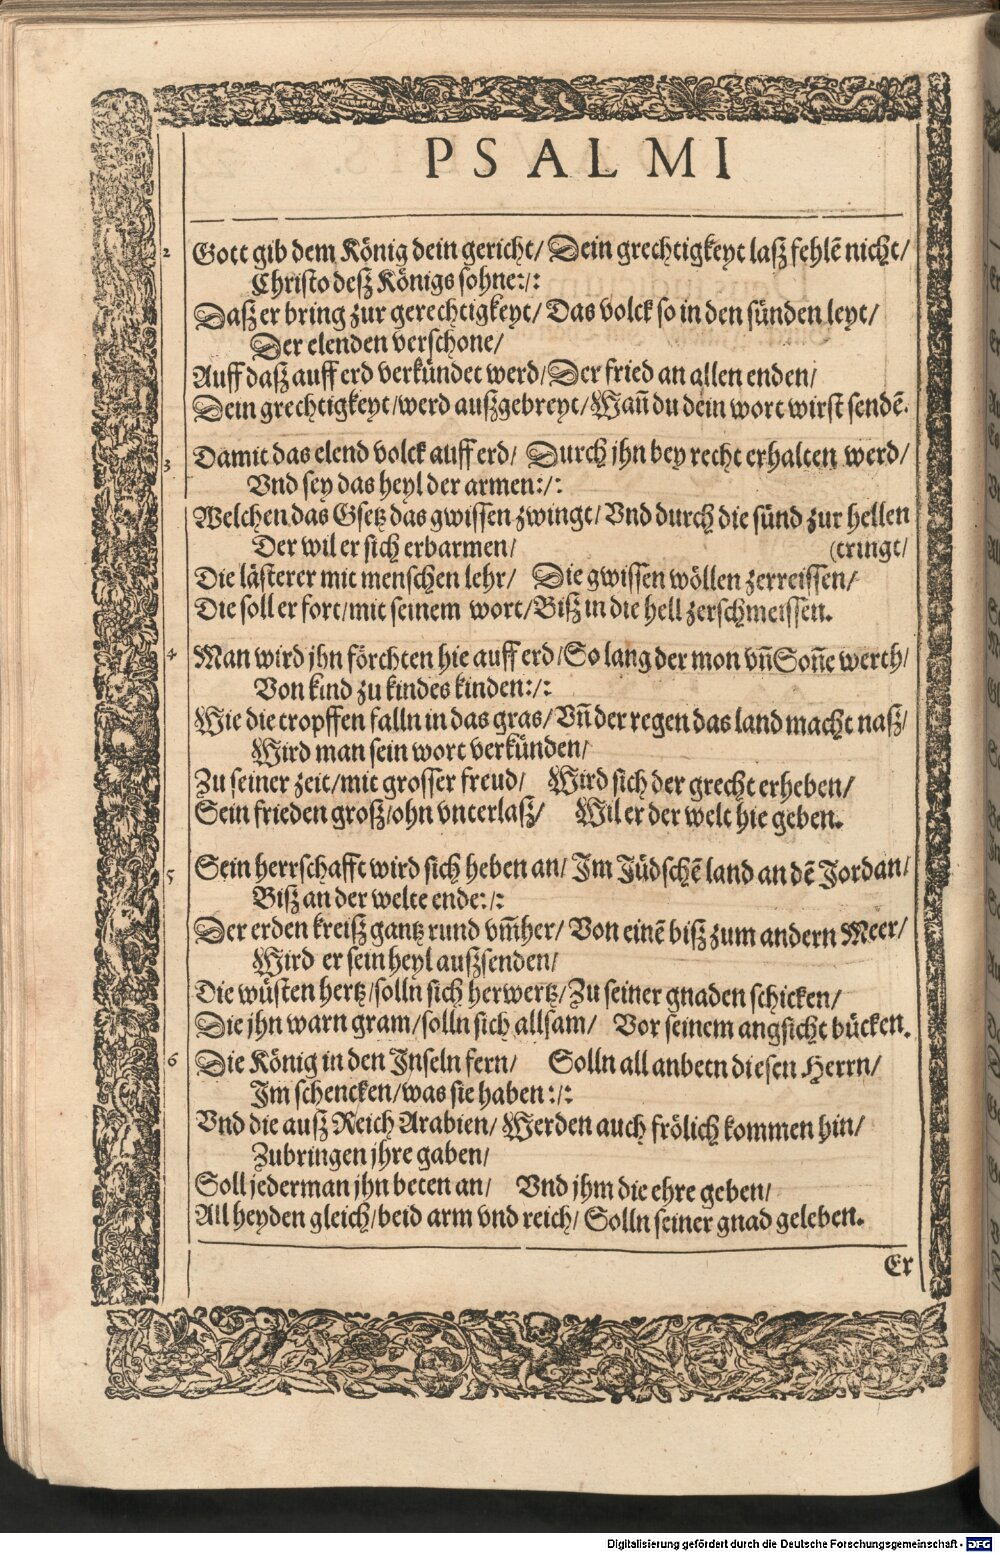 PSALMI
2 Gott gib dem König dein gericht/ Dein grechtigkeyt laß fehlē nicht/
Christo deß Königs sohne:/:
Daß er bring zur gerechtigkeyt/ Das volck so in den sünden leyt/
Der elenden verschone/
Auff daß auff erd verkündet werd/ Der fried an allen enden/
Dein grechtigkeyt/ werd außgebreyt/ Wañ du dein wort wirst sendē.
3 Damit das elend volck auff erd/ Durch jhn bey recht erhalten werd/
Vnd sey das heyl der armen:/:
Welchen das Gsetz das gwissen zwingt/ Vnd durch die sünd zur hellen
Der wil er sich erbarmen/ (tringt/
Die lästerer mit menschen lehr/ Die gwissen wöllen zerreissen/
Die soll er fort/ mit seinem wort/ Biß in die hell zerschmeissen.
4 Man wird jhn förchten hie auff erd/ So lang der mon vñ Soñe werth/
Von kind zu kindes kinden:/:
Wie die tropffen falln in das gras/ Vñ der regen das land macht naß/
Wird man sein wort verkünden/
Zu seiner zeit/ mit grosser freud/ Wird sich der grecht erheben/
Sein frieden groß/ ohn vnterlaß/ Wil er der welt hie geben.
5 Sein herrschafft wird sich heben an/ Im Jüdschē land an dē Jordan/
Biß an der welte ende:/:
Der erden kreiß gantz rund vm̃her/ Von einē biß zum andern Meer/
Wird er sein heyl außsenden/
Die wüsten hertz/ solln sich herwertz/ Zu seiner gnaden schicken/
Die jhn warn gram/ solln sich allsam/ Vor seinem angsicht bücken.
6 Die König in den Inseln fern/ Solln all anbetn diesen Herrn/
Im schencken/ was sie haben:/:
Vnd die auß Reich Arabien/ Werden auch frölich kommen hin/
Zubringen jhre gaben/
Soll jederman jhn beten an/ Vnd jhm die ehre geben/
All heyden gleich/ beid arm vnd reich/ Solln seiner gnad geleben.
Er
Digitalisierung gefördert durch die Deutsche Forschungsgemeinschaft - DFG